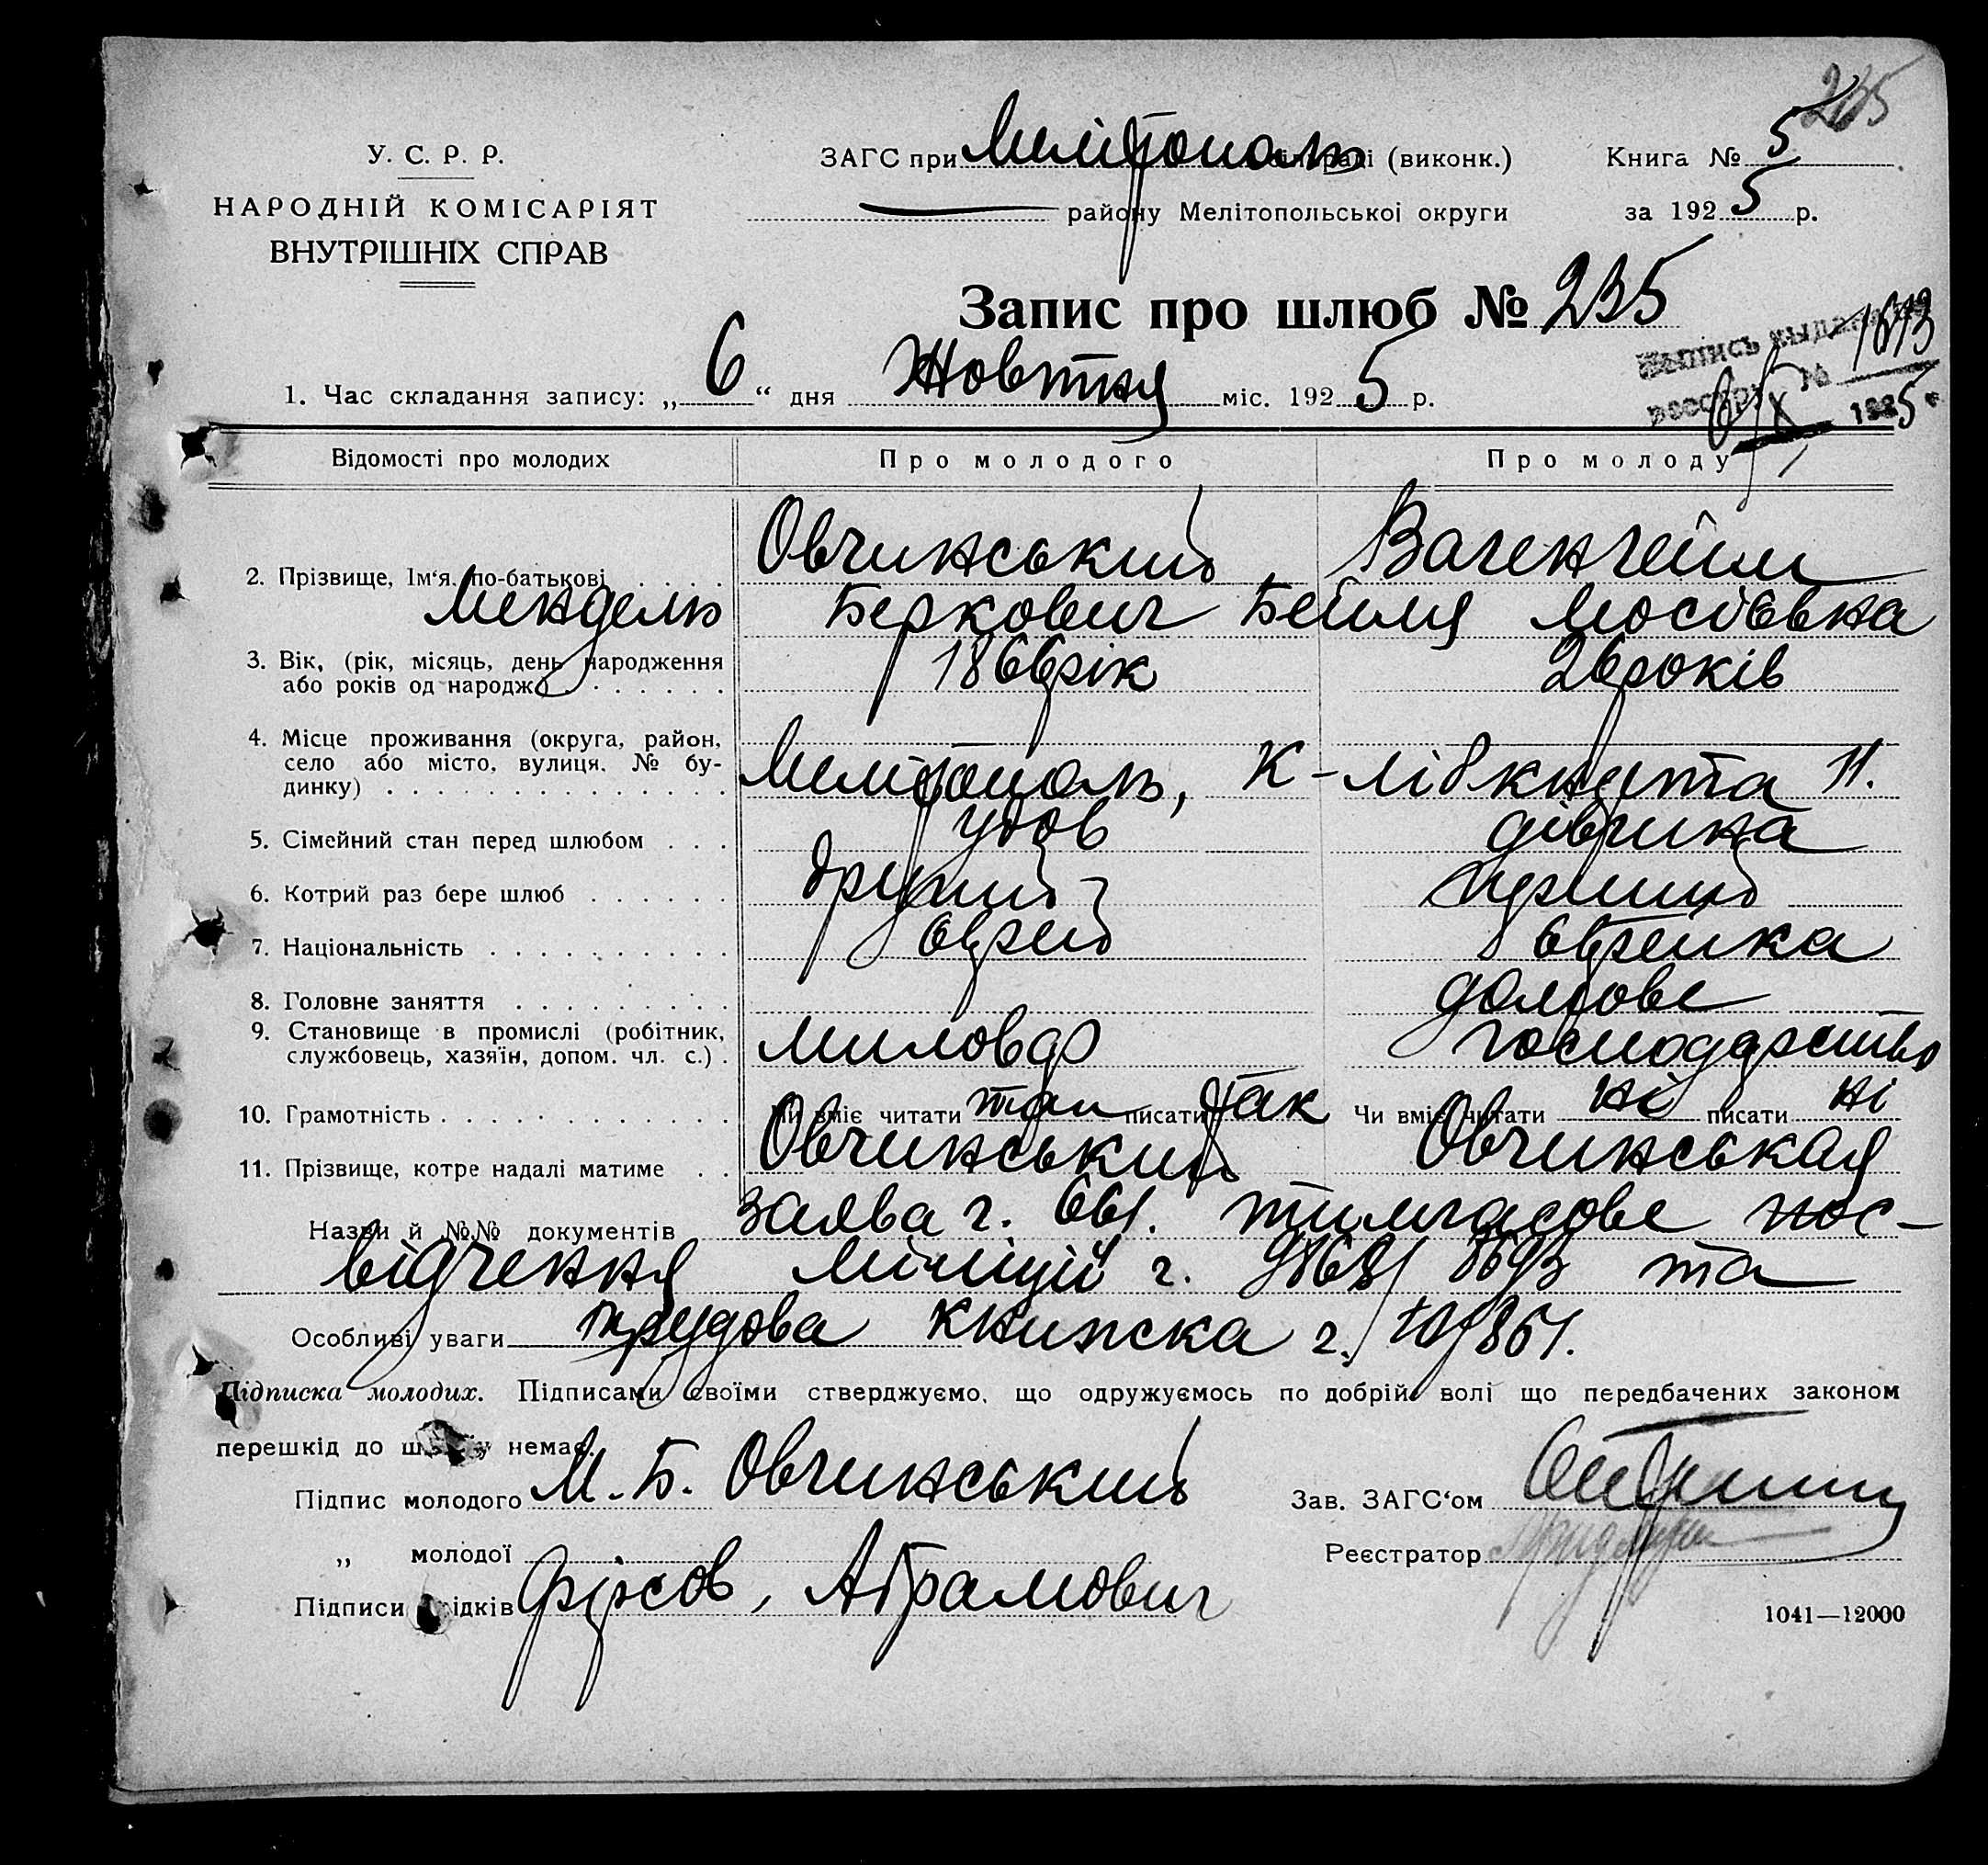 235
У. С. Р. Р.
НАРОДНІЙ КОМІСАРІЯТ
ВНУТРІШНІХ СПРАВ
ЗАГС при Мелітополь (виконк.)
Книга № 5
району Мелітопольської округи
за 1925 р.
Запис про шлюб № 235
Запись выдана по
реестру № 1813
1925 г.
1. Час складання запису: „6“ дня Жовтня міс. 1925 р.
Відомості про молодих Про молодого Про молоду
2. Прізвище, Ім‘я, по-батькові . . . . Овчинський Вагенгейм
Мендель Беркович Бейля Мосіївна
3. Вік, (рік, місяць, день народження 1866 рік 26 років
або років од народж.) . . . . . . .
4. Місце проживання (округа, район,
село або місто, вулиця, № бу- Мелітополь, К-Лібкнехта 11.
динку) . . . . . . . . . . . . . . .
5. Сімейний стан перед шлюбом . . . удов дівчина
6. Котрий раз бере шлюб . . . . . . другий перший
7. Національність . . . . . . . . . . єврей єврейка
8. Головне заняття . . . . . . . . . домове
9. Становище в промислі (робітник, миловар господарство
службовець, хазяїн, допом. чл. с.) .
10. Грамотність . . . . . . . . . . . . Чи вміє читати так писати так Чи вміє читати ні писати ні
11. Прізвище, котре надалі матиме . . Овчинський Овчинськая
Назви й №№ документів заява ч. 661. тимчасове пос-
відчення міліції ч. та
Особливі уваги трудова книжка
Підписка молодих. Підписами своїми стверджуємо, що одружуємось по добрій волі що передбачених законом
перешкід до шлюбу немає.
Підпис молодого М. Б. Овчинський
Зав. ЗАГС‘ом
„ молодої
Реєстратор
Підписи свідків Фурсов, Абрамович
1041—12000